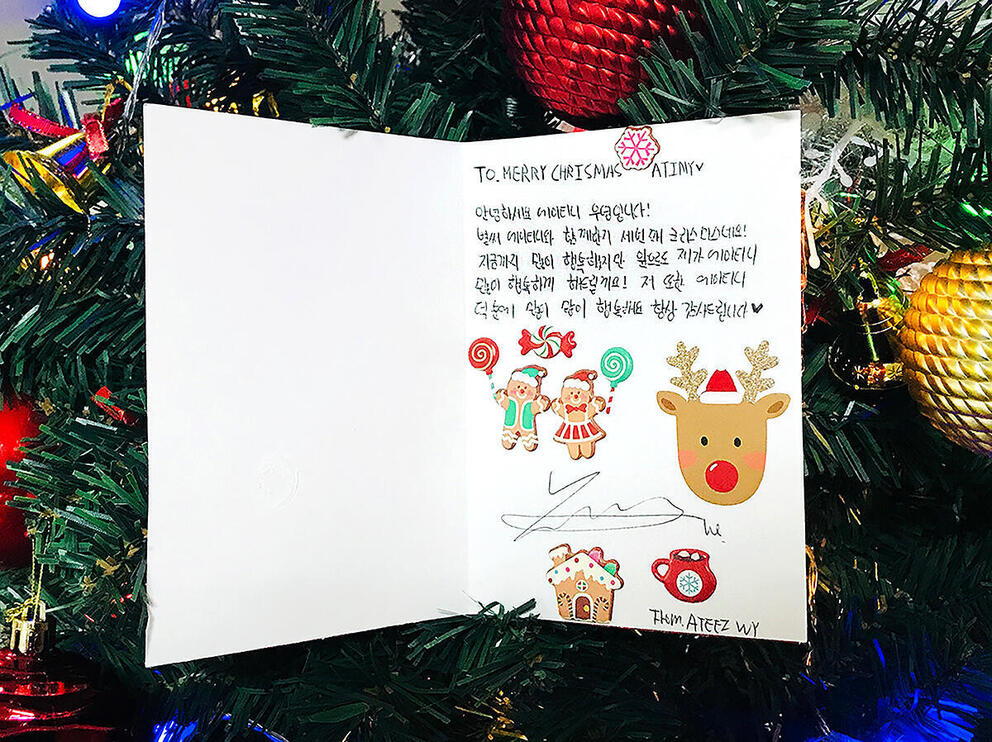 TO. MERRY CHRISMAS ATINY♥
안녕하세요 에이티니 우영입니다!
벌써 에이티니와 함께한지 세번째 크리스마스네요!
지금까지 많이 행복했지만 앞으로도 제가 에이티니
많이 행복하게 해드릴게요! 저 또한 에이티니
덕분에 많이 많이 행복해요 항상 감사드립니다♥
From. ATEEZ WY